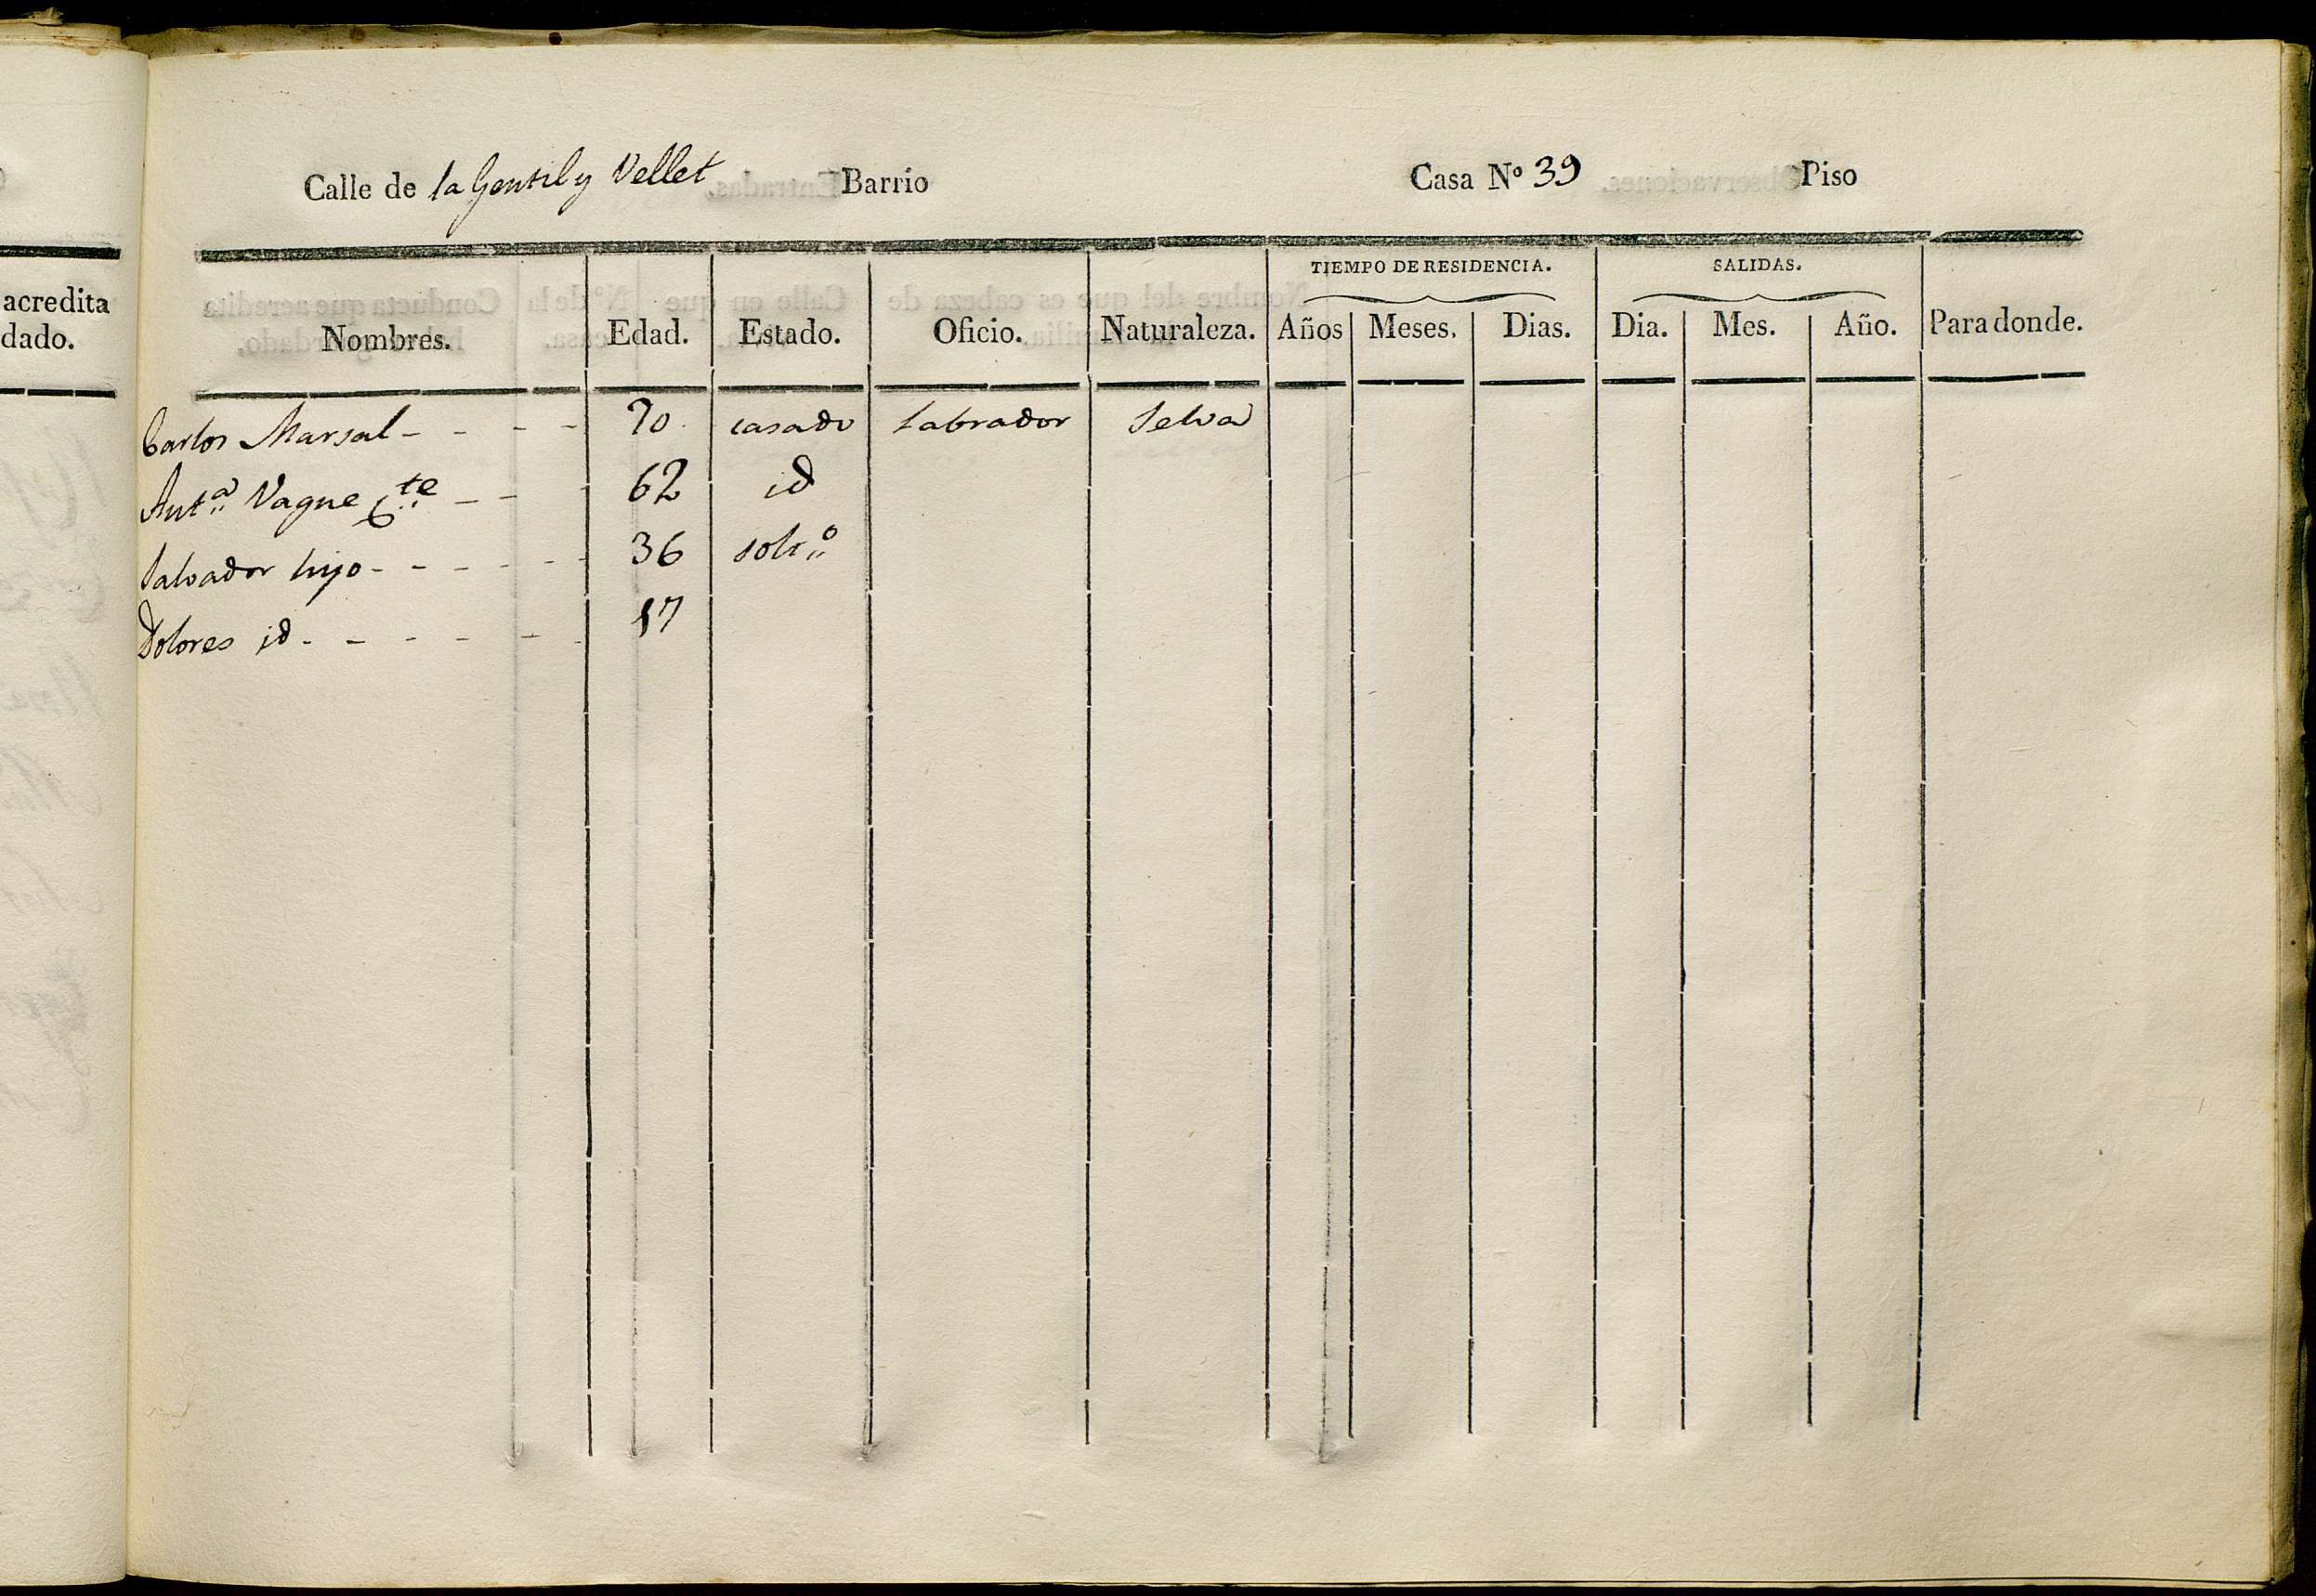 acredita
dado.
Calle de la Gentil y Vellet Barrio Casa Nº 39 Piso
TIEMPO DE RESIDENCIA. SALIDAS.
Nombres. Edad. Estado. Oficio. Naturaleza. Años Meses. Dias. Dia. Mes. Año. Para donde.
Carlos Marsal - - - - 70 casado Labrador Selva
Antª Vague - - 62 id
Salvador hijo - - - - - - 36 soltº
Dolores id - - - - - - 17